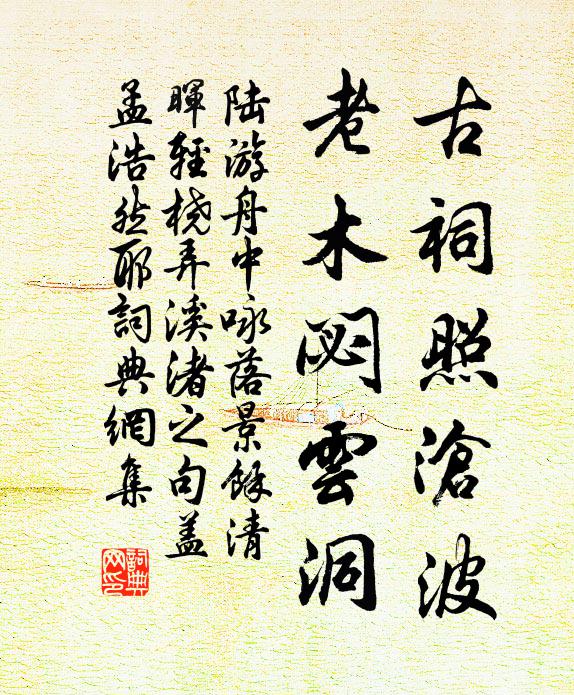 古祠照滄波
老木閟雲洞
陆游舟中咏落景餘清
暉輕橈弄溪渚之句盖
孟浩然耶詞典網集
詞典
网印